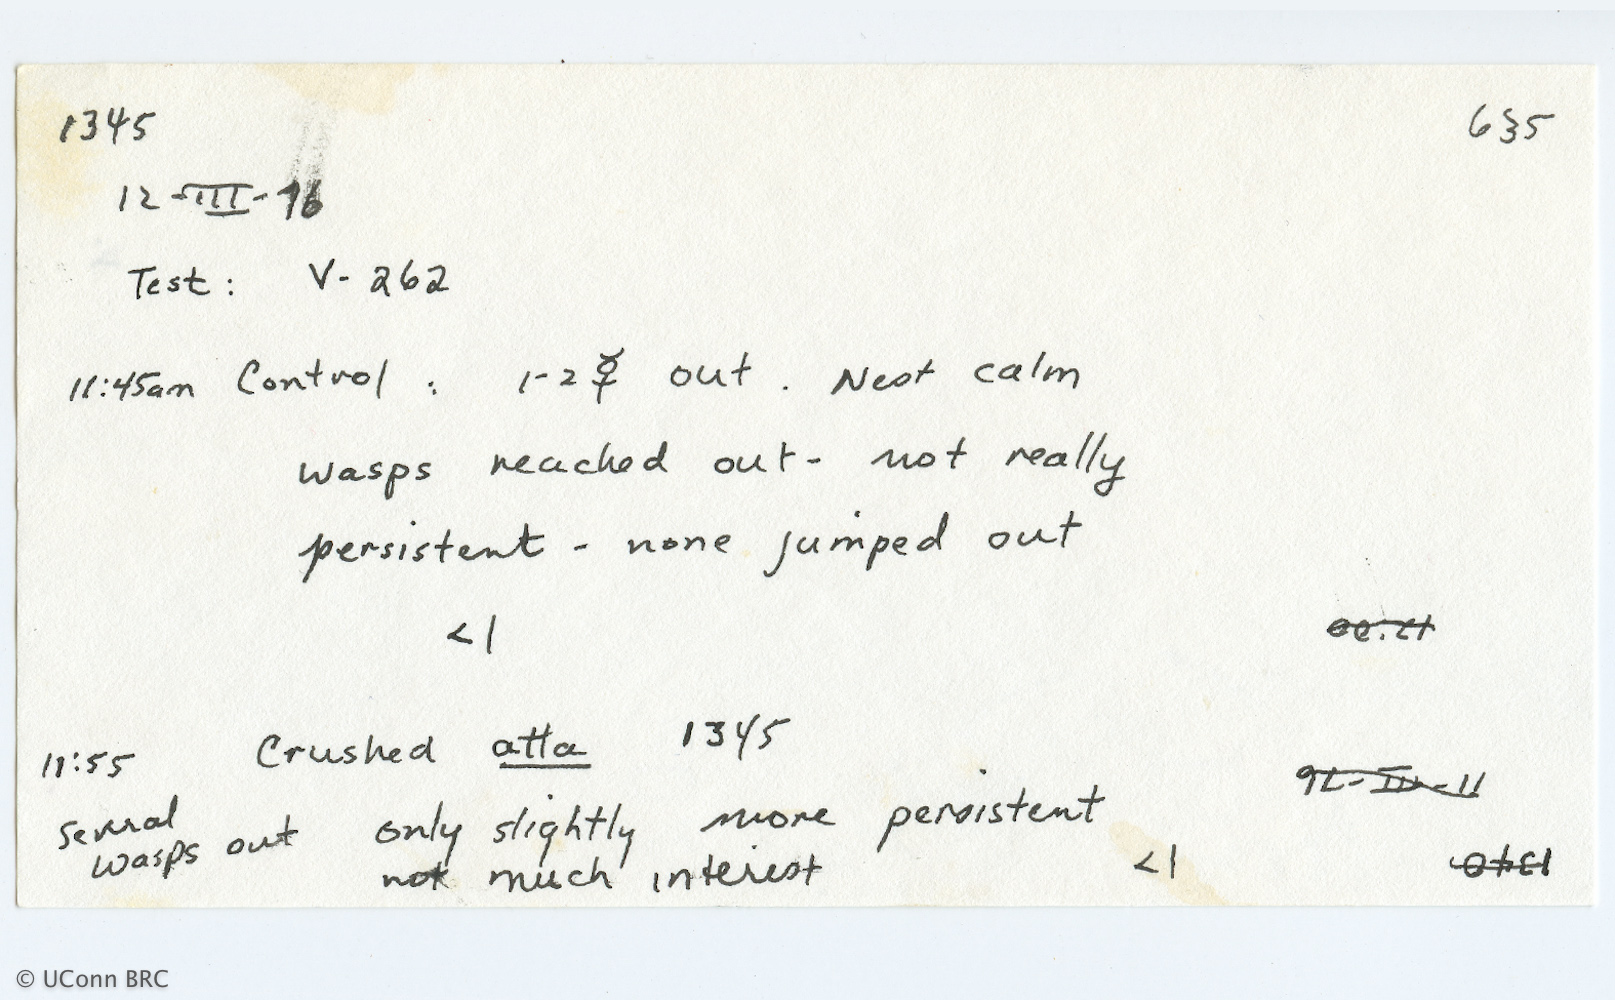 1345 6§5
12-III-76
Test: V-262
11:45am Control: 1-2 ☿ out. Nest calm
wasps reached out- not really
persistent - none jumped out
<1
11:55 Crushed atta 1345
several wasps out only slightly more persistent
not much interest <1
© UConn BRC